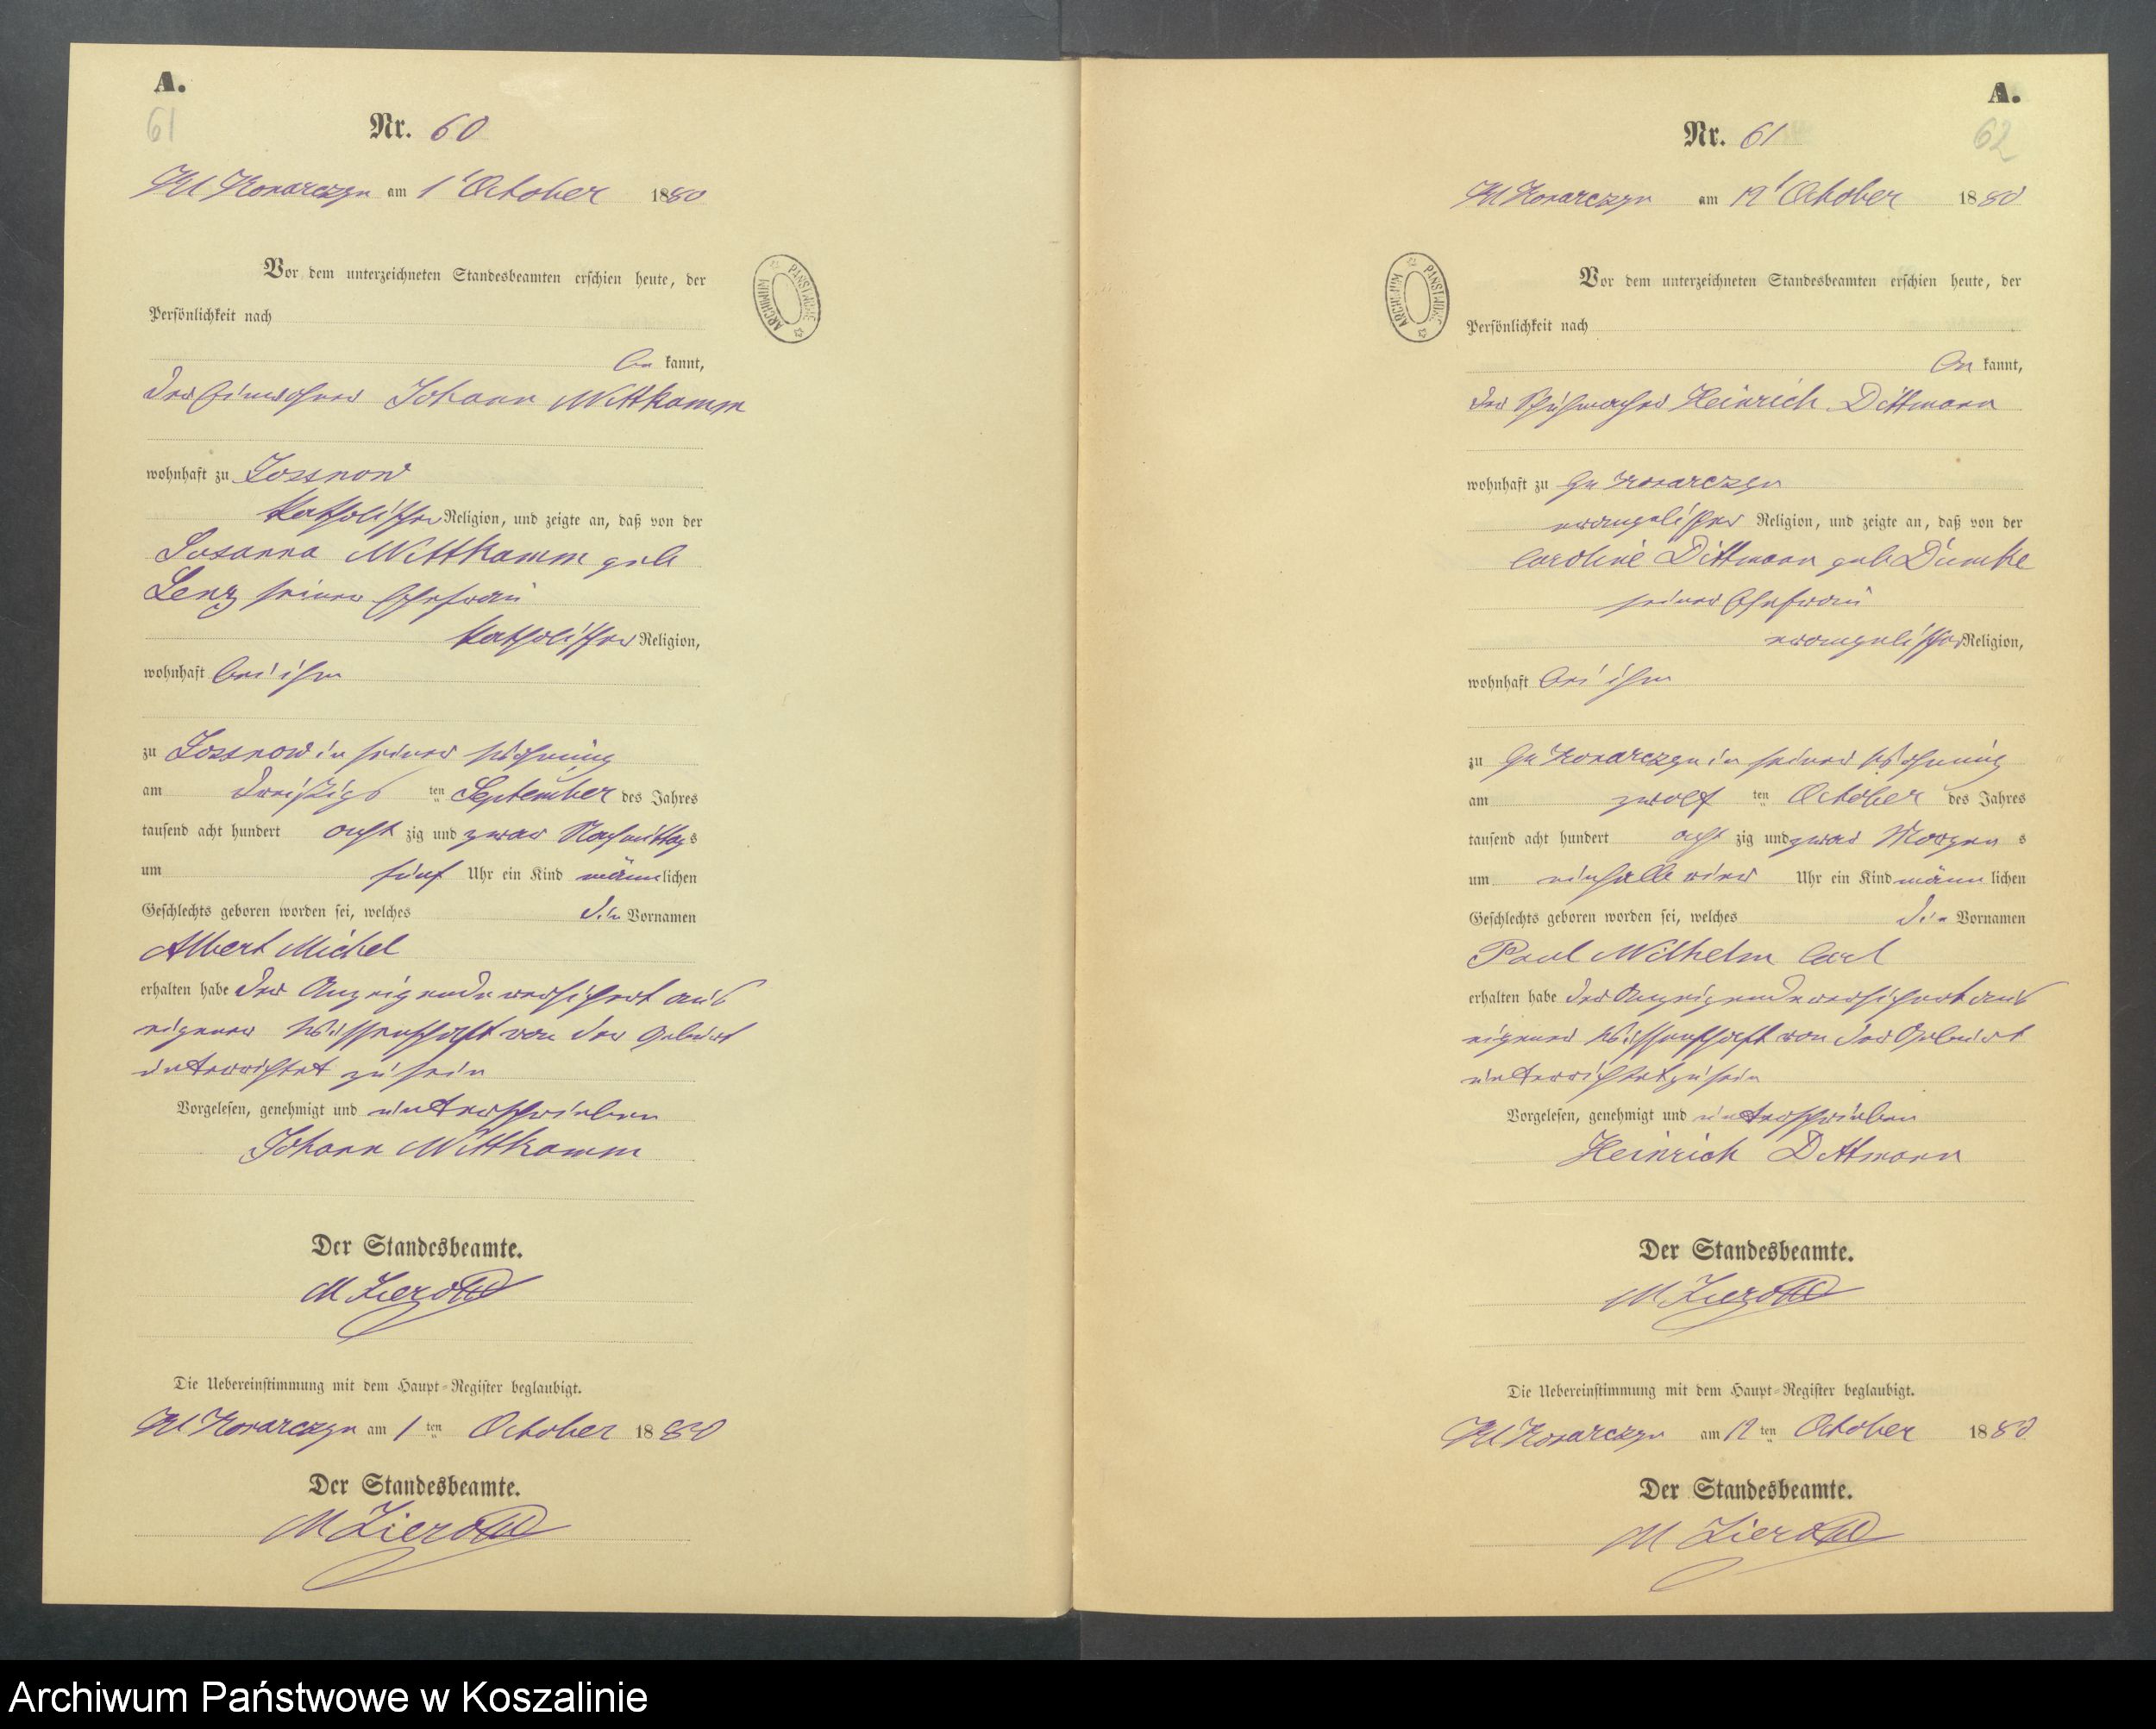 A.
61
Nr. 60
Kl Konarczyn am 1' October 1880
Vor dem unterzeichneten Standesbeamten erschien heute, der
Persönlichkeit nach
be kannt,
der Einwohner Johann Wittkamm
wohnhaft zu Zossnow
katholischer Religion, und zeigte an, daß von der
Susanna Wittkamm geb
Lenz seiner Ehefrau
katholischer Religion,
wohnhaft bei ihm
zu Zossnow in seiner Wohnung
am dreißigs ten September des Jahres
tausend acht hundert acht zig und zwar Nachmittag s
um fünf Uhr ein Kind männ lichen
Geschlechts geboren worden sei, welches die Vornamen
Albert Michel
erhalten habe der Anzeigende versichert aus
eigener Wissenschaft von der Geburt
unterrichtet zu sein
Vorgelesen, genehmigt und unterschrieben
Johann Wittkamm
Der Standesbeamte.
M Zieroth
Die Uebereinstimmung mit dem Haupt-Register beglaubigt.
Kl Konarczyn am 1 ten October 1880
Der Standesbeamte.
M Zieroth
ARCHIWUM PAŃSTWOWE
A.
62
Nr. 61
Kl Konarczyn am 12' October 1880
Vor dem unterzeichneten Standesbeamten erschien heute, der
Persönlichkeit nach
be kannt,
der Schuhmacher Heinrich Dittmann
wohnhaft zu Gr Konarczyn
evangelischer Religion, und zeigte an, daß von der
Caroline Dittmann geb Dumke
seiner Ehefrau
evangelischer Religion,
wohnhaft bei ihm
zu Gr Konarczyn in seiner Wohnung
am zwölf ten October des Jahres
tausend acht hundert acht zig und zwar Morgen s
um einhalb vier Uhr ein Kind männ lichen
Geschlechts geboren worden sei, welches die Vornamen
Paul Wilhelm Carl
erhalten habe der Anzeigende versichert aus
eigener Wissenschaft von der Geburt
unterrichtet zu sein
Vorgelesen, genehmigt und unterschrieben
Heinrich Dittmann
Der Standesbeamte.
M Zieroth
Die Uebereinstimmung mit dem Haupt-Register beglaubigt.
Kl Konarczyn am 12 ten October 1880
Der Standesbeamte.
M Zieroth
ARCHIWUM PAŃSTWOWE
Archiwum Państwowe w Koszalinie